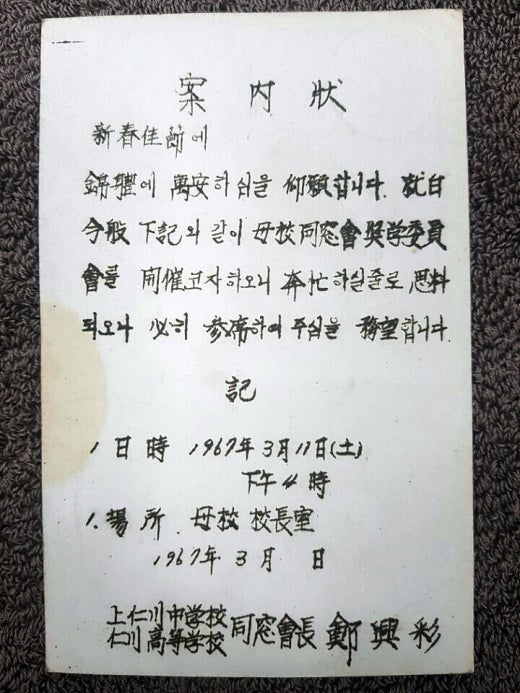 案內狀
新春佳節에
錦軆에 萬安하심을 仰願합니다. 就白
今般 下記와 같이 母校同窓會奬学委員
會를 開催코자하오니 奔忙하실줄로 思料
되오나 必히 參席하여주심을 務望합니다.
記
1 日時 1967年 3月 11日(土)
下午 4時
1. 場所 母校 校長室
1967年 3月 日
上仁川中学校
仁川高等学校 同窓會長 鄭興彩